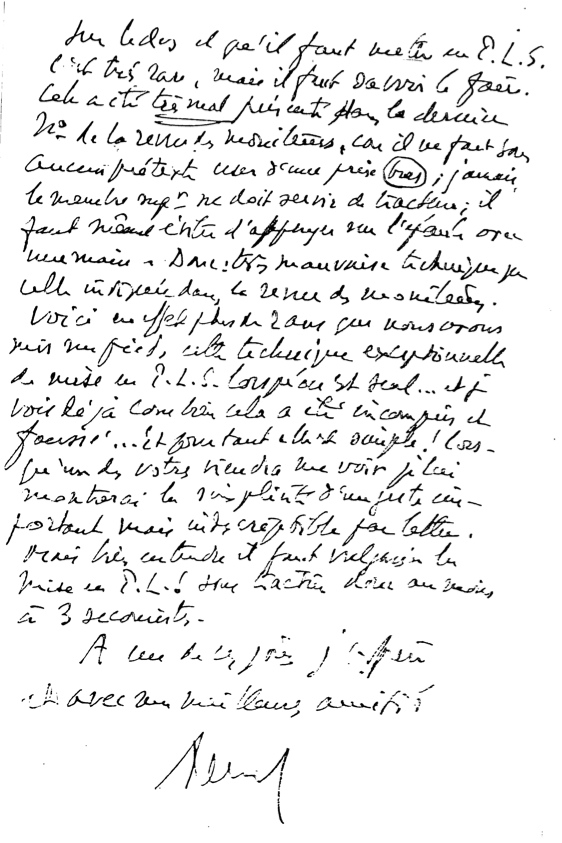 sur le dos et qu'il faut mettre en P.L.S.
C'est très rare, mais il faut savoir le faire.
Cela a été très mal présenté dans la dernière
N° de la revue des moniteurs, car il ne faut sous
aucun prétexte user d'une prise bras ; jamais
le membre supr ne doit servir de tracteur ; il
faut même éviter d'appuyer sur l'épaule avec
une main. Donc : très mauvaise technique que
celle indiquée dans la revue des moniteurs.
Voici en effet plus de 2 ans que nous avons
mis sur pied, cette technique exceptionnelle
de mise en P.L.S. lorsqu'on est seul... et je
vois déjà combien cela a été incompris et
faussé !... Et pourtant elle est simple ! Lors-
qu'un des votres viendra me voir je lui
montrerai la simplicité d'un geste im-
portant mais indescriptible par lettre.
Mais bien entendu il faut vulgariser la
mise en P.L.S sous traction donc au moins
à 3 secouristes.
A un de ces jours j'espère
et avec mes meilleures amitiés